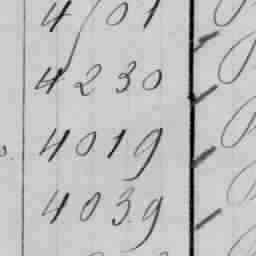 4230
4019
4039